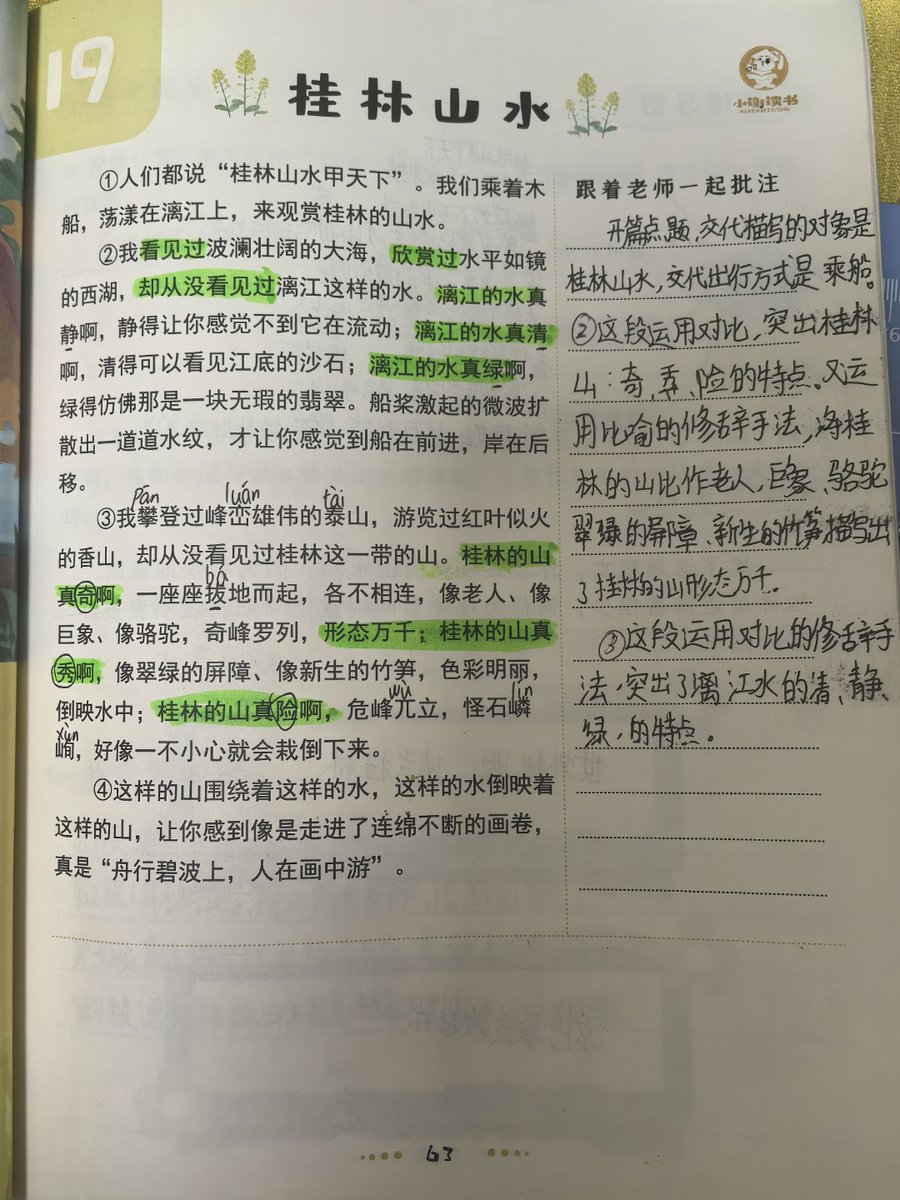 19
桂林山水
小谢读书
XIAOXIEDUSHU
①人们都说“桂林山水甲天下”。我们乘着木
船，荡漾在漓江上，来观赏桂林的山水。
②我看见过波澜壮阔的大海，欣赏过水平如镜
的西湖，却从没看见过漓江这样的水。漓江的水真
静啊，静得让你感觉不到它在流动；漓江的水真清
啊，清得可以看见江底的沙石；漓江的水真绿啊，
绿得仿佛那是一块无瑕的翡翠。船桨激起的微波扩
散出一道道水纹，才让你感觉到船在前进，岸在后
移。
pān luán tài
③我攀登过峰峦雄伟的泰山，游览过红叶似火
的香山，却从没看见过桂林这一带的山。桂林的山
bá
真奇啊，一座座拔地而起，各不相连，像老人、像
巨象、像骆驼，奇峰罗列，形态万千；桂林的山真
秀啊，像翠绿的屏障、像新生的竹笋，色彩明丽，
wù lín
倒映水中；桂林的山真险啊，危峰兀立，怪石嶙
xún
峋，好像一不小心就会栽倒下来。
④这样的山围绕着这样的水，这样的水倒映着
这样的山，让你感到像是走进了连绵不断的画卷，
真是“舟行碧波上，人在画中游”。
跟着老师一起批注
开篇点题，交代描写的对象是
桂林山水，交代出行方式是乘船。
②这段运用对比，突出桂林
山：奇、秀、险的特点。又运
用比喻的修辞手法，将桂
林的山比作老人，巨象、骆驼
翠绿的屏障、新生的竹笋描写出
了桂林的山形态万千.
③这段运用对比的修辞手
法，突出了漓江水的清、静、
绿，的特点。
63